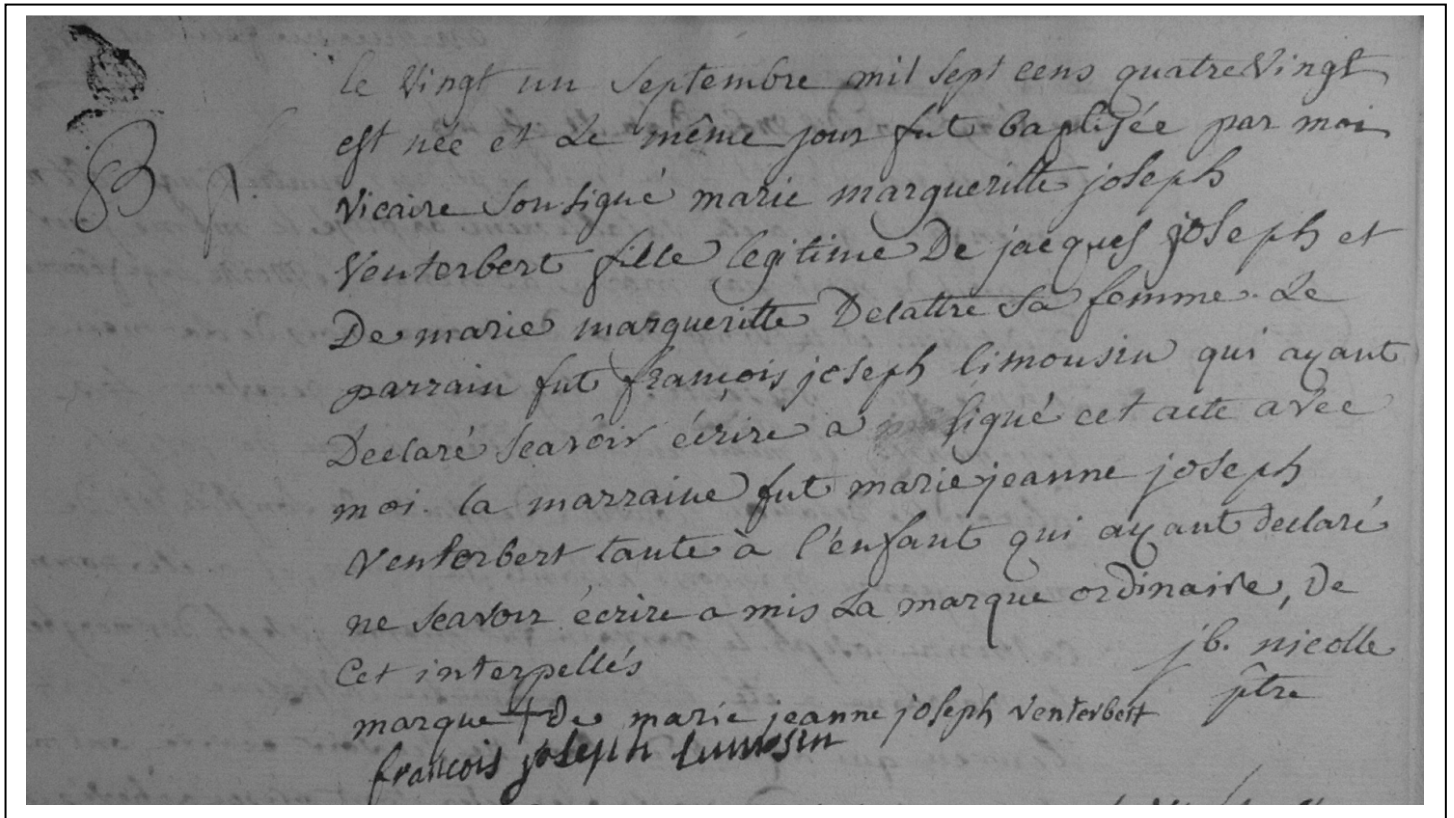 B
le Vingt un Septembre mil sept cens quatre Vingt
est née et Le même jour fut baptisée par moi
Vicaire Sousigné marie margueritte joseph
Venterbert fille legitime De jacques joseph et
De marie margueritte Delattre Sa femme. Le
parrain fut françois joseph limousin qui ayant
Declaré Scavoir écrire a signé cet acte avec
moi la marraine fut marie jeanne joseph
Venterbert tante à l'enfant qui ayant declaré
ne scavoir écrire a mis La marque ordinaire, De
Cet interpellés
jb. nicolle
ptre
marque † De marie jeanne joseph Venterbert
francois joseph Lumosin